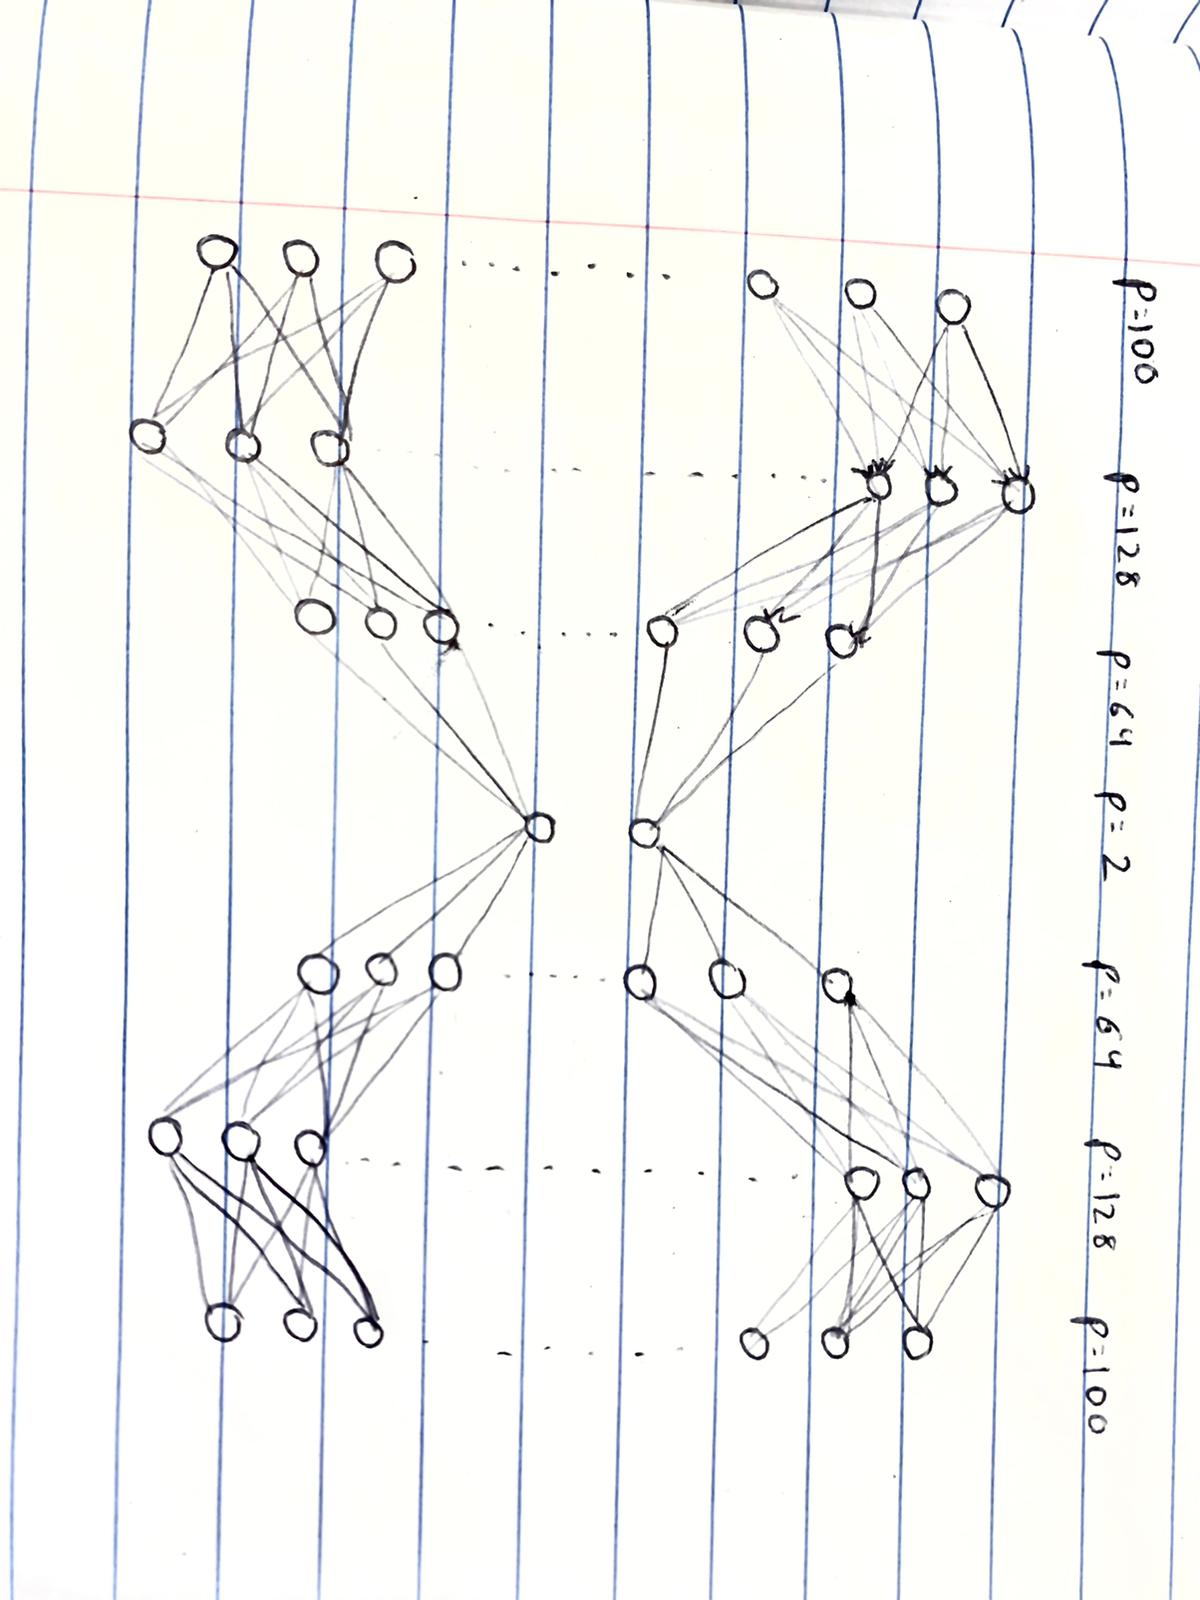 p=100
p=128
p=64
p=2
p=64
p=128
p=100